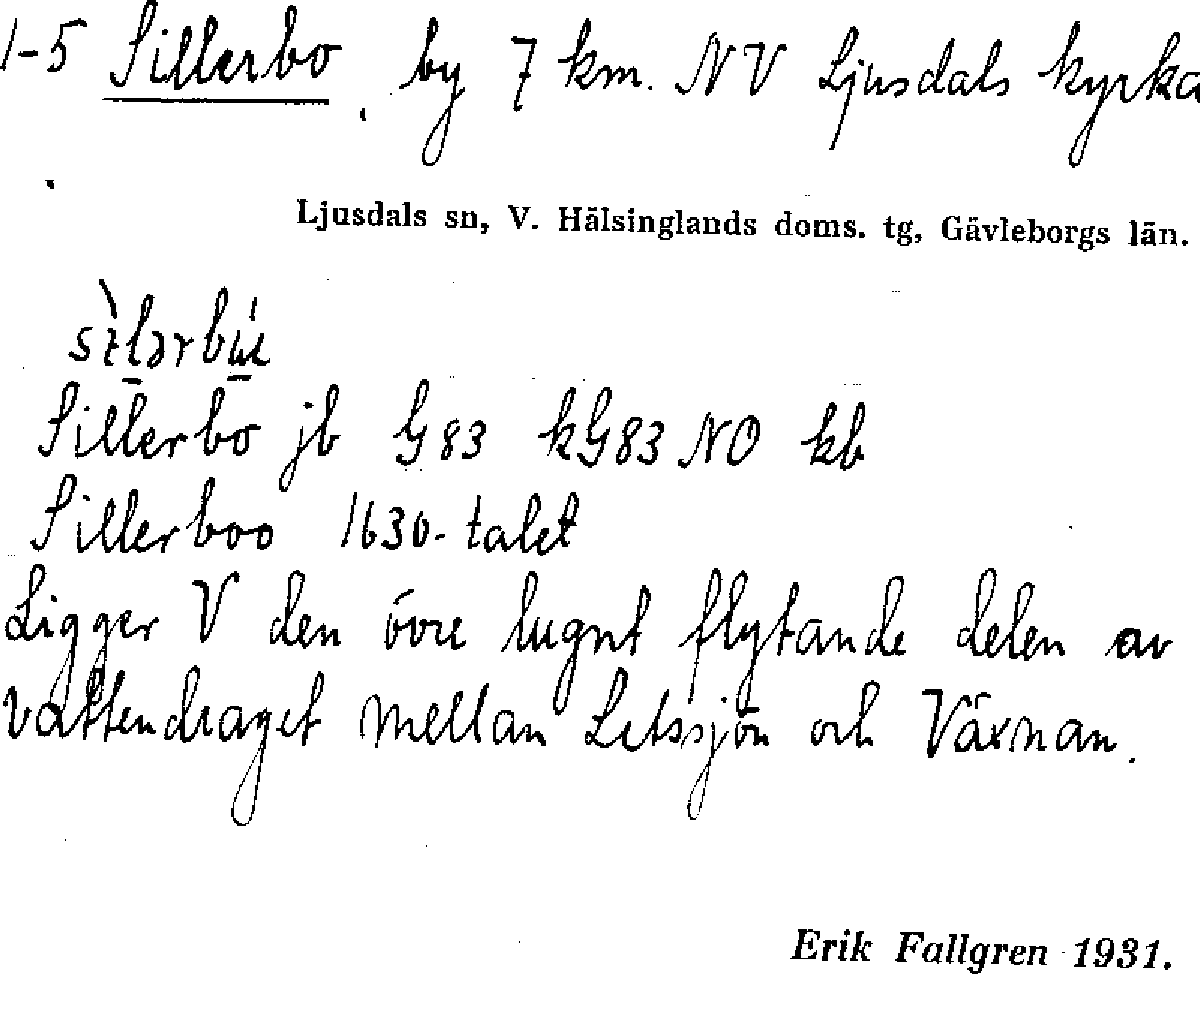 1-5 Sillerbo, by 7 km. NV Ljusdals kyrka
Ljusdals sn, V. Hälsinglands doms. tg, Gävleborgs län.
Sillerbo jb G83 kG83NO kb
Sillerboo 1630-talet
Ligger V den övre lugnt flytande delen av
vattendraget mellan Letssjön och Växnan.
Erik Fallgren 1931.